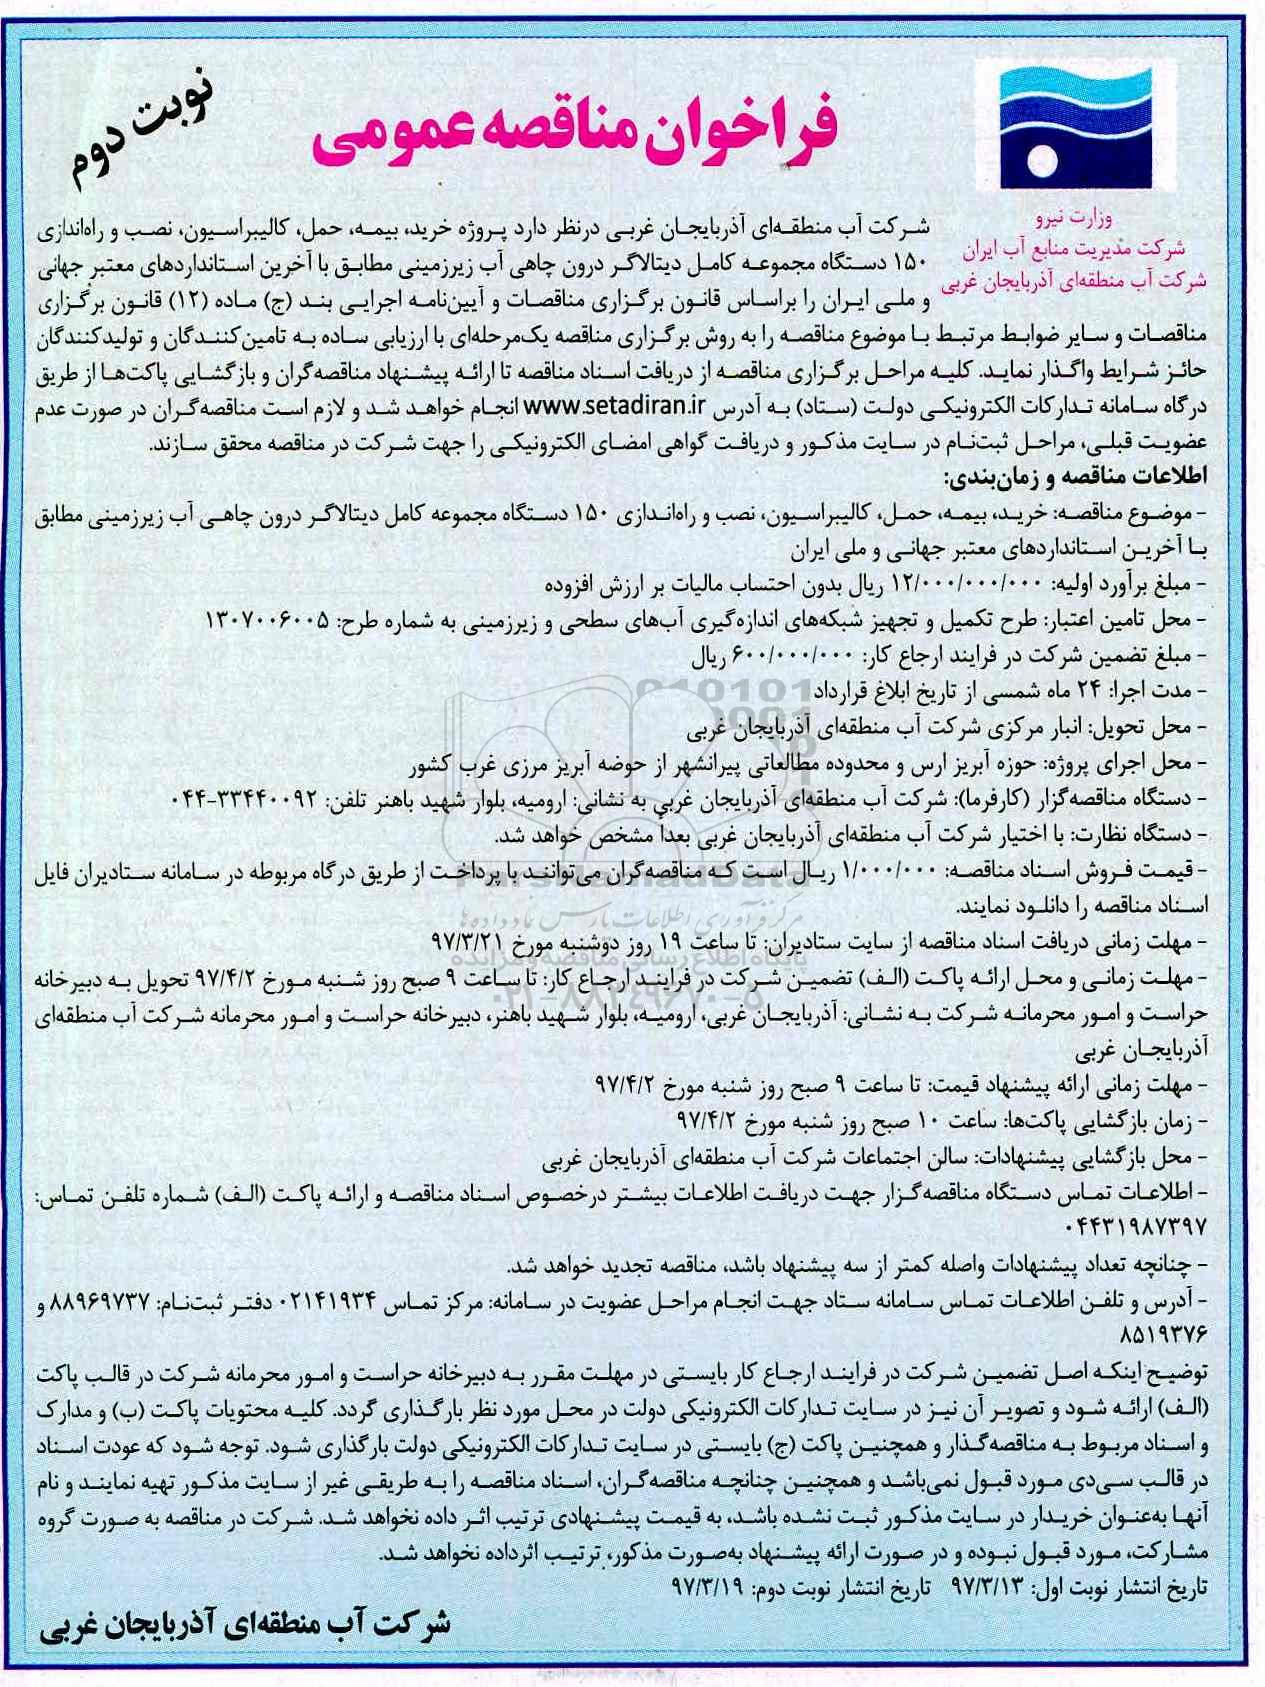 نوبت دوم
فراخوان مناقصه عمومی
وزارت نیرو
شرکت مدیریت منابع آب ایران
شرکت آب منطقه‌ای آذربایجان غربی
شرکت آب منطقه‌ای آذربایجان غربی درنظر دارد پروژه خرید، بیمه، حمل، کالیبراسیون، نصب و راه‌اندازی
۱۵۰ دستگاه مجموعه کامل دیتالاگر درون چاهی آب زیرزمینی مطابق با آخرین استانداردهای معتبر جهانی
و ملی ایران را براساس قانون برگزاری مناقصات و آیین‌نامه اجرایی بند (ج) ماده (۱۲) قانون برگزاری
مناقصات و سایر ضوابط مرتبط با موضوع مناقصه را به روش برگزاری مناقصه یک‌مرحله‌ای با ارزیابی ساده به تامین‌کنندگان و تولیدکنندگان
حائز شرایط واگذار نماید. کلیه مراحل برگزاری مناقصه از دریافت اسناد مناقصه تا ارائه پیشنهاد مناقصه‌گران و بازگشایی پاکت‌ها از طریق
درگاه سامانه تدارکات الکترونیکی دولت (ستاد) به آدرس www.setadiran.ir انجام خواهد شد و لازم است مناقصه‌گران در صورت عدم
عضویت قبلی، مراحل ثبت‌نام در سایت مذکور و دریافت گواهی امضای الکترونیکی را جهت شرکت در مناقصه محقق سازند.
اطلاعات مناقصه و زمان‌بندی:
- موضوع مناقصه: خرید، بیمه، حمل، کالیبراسیون، نصب و راه‌اندازی ۱۵۰ دستگاه مجموعه کامل دیتالاگر درون چاهی آب زیرزمینی مطابق
با آخرین استانداردهای معتبر جهانی و ملی ایران
- مبلغ برآورد اولیه: ۱۲/۰۰۰/۰۰۰/۰۰۰ ریال بدون احتساب مالیات بر ارزش افزوده
- محل تامین اعتبار: طرح تکمیل و تجهیز شبکه‌های اندازه‌گیری آب‌های سطحی و زیرزمینی به شماره طرح: ۱۳۰۷۰۰۶۰۰۵
- مبلغ تضمین شرکت در فرایند ارجاع کار: ۶۰۰/۰۰۰/۰۰۰ ریال
- مدت اجرا: ۲۴ ماه شمسی از تاریخ ابلاغ قرارداد
- محل تحویل: انبار مرکزی شرکت آب منطقه‌ای آذربایجان غربی
- محل اجرای پروژه: حوزه آبریز ارس و محدوده مطالعاتی پیرانشهر از حوضه آبریز مرزی غرب کشور
- دستگاه مناقصه‌گزار (کارفرما): شرکت آب منطقه‌ای آذربایجان غربی به نشانی: ارومیه، بلوار شهید باهنر تلفن: ۳۳۴۴۰۰۹۲-۰۴۴
- دستگاه نظارت: با اختیار شرکت آب منطقه‌ای آذربایجان غربی بعداً مشخص خواهد شد.
- قیمت فروش اسناد مناقصه: ۱/۰۰۰/۰۰۰ ریال است که مناقصه‌گران می‌توانند با پرداخت از طریق درگاه مربوطه در سامانه ستادیران فایل
اسناد مناقصه را دانلود نمایند.
ParsNamadData
مرکز فرآوری اطلاعات پارس نماد داده‌ها
- مهلت زمانی دریافت اسناد مناقصه از سایت ستادیران: تا ساعت ۱۹ روز دوشنبه مورخ ۹۷/۳/۲۱
پایگاه اطلاع رسانی مناقصه و مزایده
- مهلت زمانی و محل ارائه پاکت (الف) تضمین شرکت در فرایند ارجاع کار: تا ساعت ۹ صبح روز شنبه مورخ ۹۷/۴/۲ تحویل به دبیرخانه
۰۲۱-۸۸۳۴۹۶۷۰-۵
حراست و امور محرمانه شرکت به نشانی: آذربایجان غربی، ارومیه، بلوار شهید باهنر، دبیرخانه حراست و امور محرمانه شرکت آب منطقه‌ای
آذربایجان غربی
- مهلت زمانی ارائه پیشنهاد قیمت: تا ساعت ۹ صبح روز شنبه مورخ ۹۷/۴/۲
- زمان بازگشایی پاکت‌ها: ساعت ۱۰ صبح روز شنبه مورخ ۹۷/۴/۲
- محل بازگشایی پیشنهادات: سالن اجتماعات شرکت آب منطقه‌ای آذربایجان غربی
- اطلاعات تماس دستگاه مناقصه‌گزار جهت دریافت اطلاعات بیشتر درخصوص اسناد مناقصه و ارائه پاکت (الف) شماره تلفن تماس:
۰۴۴۳۱۹۸۷۳۹۷
- چنانچه تعداد پیشنهادات واصله کمتر از سه پیشنهاد باشد، مناقصه تجدید خواهد شد.
- آدرس و تلفن اطلاعات تماس سامانه ستاد جهت انجام مراحل عضویت در سامانه: مرکز تماس ۰۲۱۴۱۹۳۴ دفتر ثبت‌نام: ۸۸۹۶۹۷۳۷ و
۸۵۱۹۳۷۶
توضیح اینکه اصل تضمین شرکت در فرایند ارجاع کار بایستی در مهلت مقرر به دبیرخانه حراست و امور محرمانه شرکت در قالب پاکت
(الف) ارائه شود و تصویر آن نیز در سایت تدارکات الکترونیکی دولت در محل مورد نظر بارگذاری گردد. کلیه محتویات پاکت (ب) و مدارک
و اسناد مربوط به مناقصه‌گذار و همچنین پاکت (ج) بایستی در سایت تدارکات الکترونیکی دولت بارگذاری شود. توجه شود که عودت اسناد
در قالب سی‌دی مورد قبول نمی‌باشد و همچنین چنانچه مناقصه‌گران، اسناد مناقصه را به طریقی غیر از سایت مذکور تهیه نمایند و نام
آنها به‌عنوان خریدار در سایت مذکور ثبت نشده باشد، به قیمت پیشنهادی ترتیب اثر داده نخواهد شد. شرکت در مناقصه به صورت گروه
مشارکت، مورد قبول نبوده و در صورت ارائه پیشنهاد به‌صورت مذکور، ترتیب اثرداده نخواهد شد.
تاریخ انتشار نوبت اول: ۹۷/۳/۱۳ تاریخ انتشار نوبت دوم: ۹۷/۳/۱۹
شرکت آب منطقه‌ای آذربایجان غربی